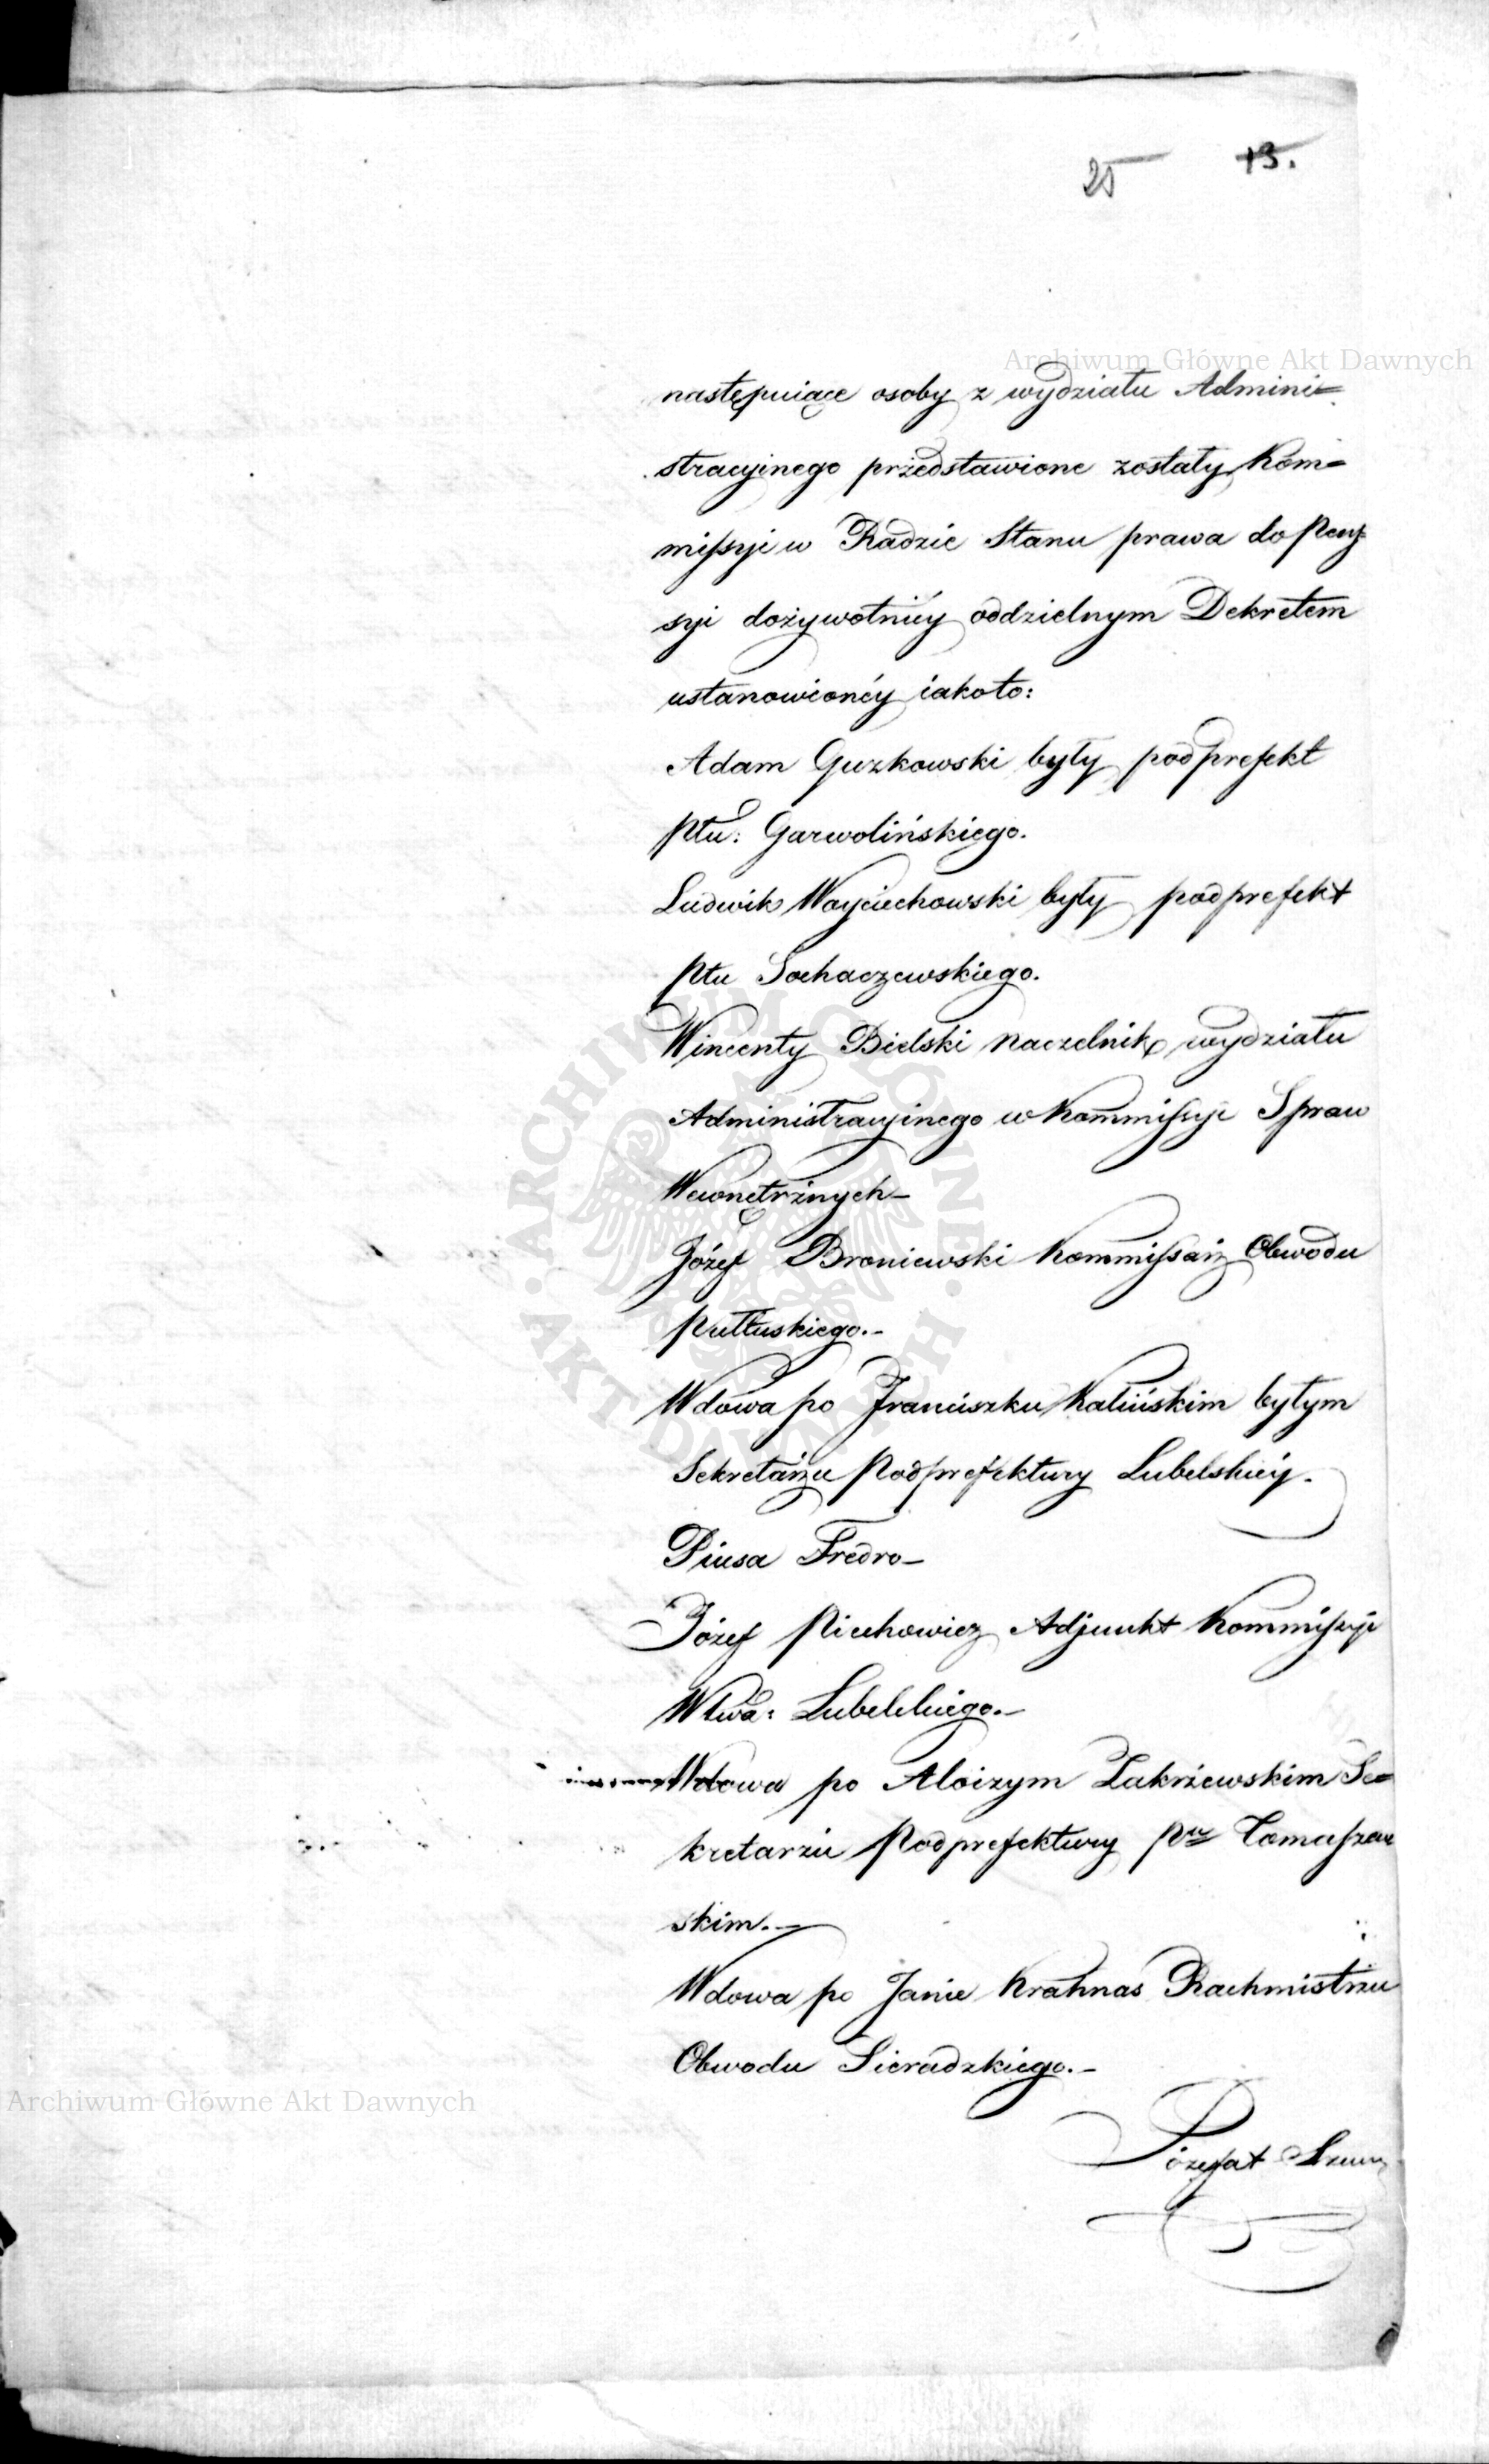 25 13.
Archiwum Główne Akt Dawnych
następuiące osoby z wydziału Admini=
stracyinego przedstawione zostały Kom=
missyi w Radzie Stanu prawa do Pen=
syi dożywotniéy oddzielnym Dekretem
ustanowionéy iakoto:
Adam Guzkowski były podprefekt
Ptu: Garwolińskiego.
Ludwik Woyciechowski były podprefekt
Ptu Sochaczewskiego.
Wincenty Bielski Naczelnik wydziału
Administracyinego w Kommissyi Spraw
Wewnętrznych_
Józef Broniewski Kommissarz Obwodu
Pułtuskiego._
Wdowa po Franciszku Kalińskim byłym
Sekretarzu Podprefektury Lubelskiéy.
Piusa Fredro_
Józef Piechowicz Adjunkt Kommissyi
Wtwa: Lubelskiego._
Wdowa po Aloizym Zakrzewskim Se=
kretarzu Podprefektury Ptu Tomaszew
skim._
Wdowa po Janie Krahnas Rachmistrzu
Obwodu Sieradzkiego._
Józefat
ARCHIWUM GŁÓWNE AKT DAWNYCH
Archiwum Główne Akt Dawnych